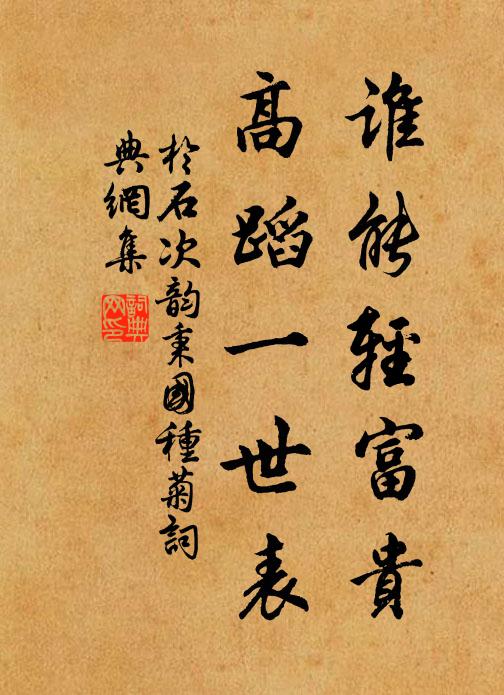 誰能輕富貴
高蹈一世表
於石次韵秉國種菊詞
典網集
詞典網印